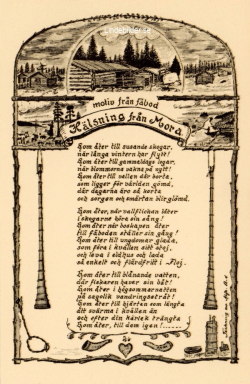 Lindebilder.se
motiv från fäbod
Hälsning från Moora
Hom åter till susande skogar,
när långa vintern har flytt!
Hom åter till gammalåoge logar,
när blommorna vakna på nytt!
Hom åter till vallen där borta,
som ligger för världen gömd,
där dagarna äro så korta
och sorgen och smärtan blir glömd.
Hom åter, när vallflickan låter
i skogarne höra sin sång!
Hom åter när boskapen åter
till fäboden ställer sin gång!
Hom åter till ungdomar glada,
som fira i kvällen sitt stoj,
och leva i eldhus och lada
så enkelt och flärdfritt i Floj.
Hom åter till blånande vatten,
där fiskaren haver sin båt!
Hom åter i högsommarnatten
på segelik vandringsstråt!
Hom åter till hjärtan som längta
att svärma i kvällen än
och efter din kärlek trängta
Hom åter, till dem igen!